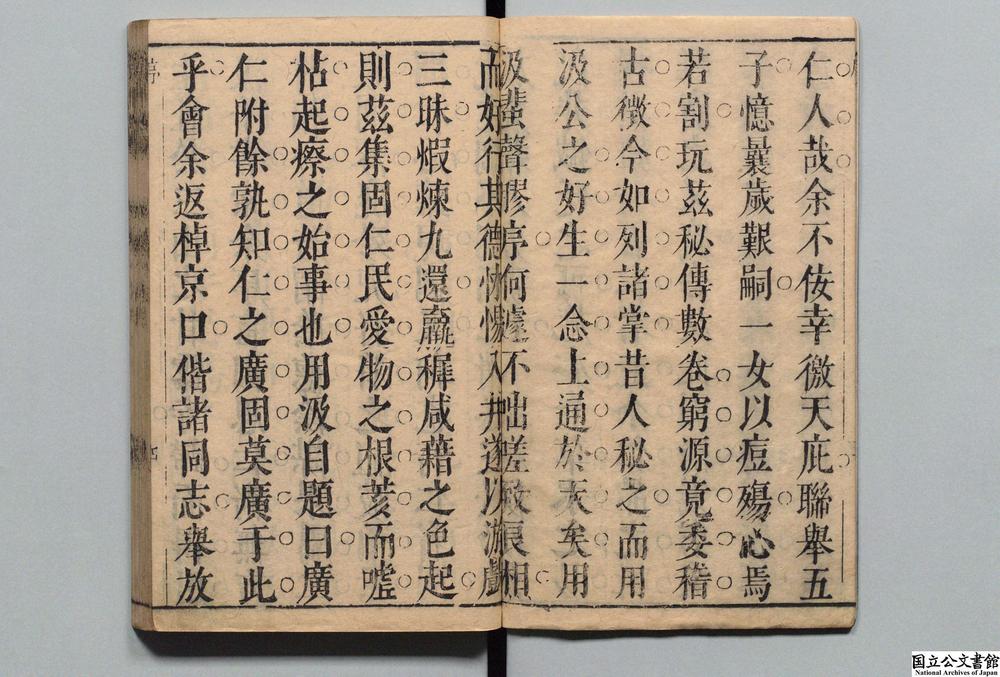 仁人哉余不佞幸徼天庇聯舉五
子憶曩歲艱嗣一女以痘殤心焉
若割玩茲秘傳數卷窮源竟委稽
古徵今如列諸掌昔人秘之而用
汲公之好生一念上通於天矣用
汲蜚聲膠庠何遽不出嗟
相
而好行其德入井遂以游戲
三昧煆煉九還稗咸藉之色起
則茲集固仁民愛物之根荄而噓
枯起瘵之始事也用汲自題曰廣
仁附餘孰知仁之廣固莫廣于此
乎會余返棹京口偕諸同志舉放
序
国立公文書館
National Archives of Japan